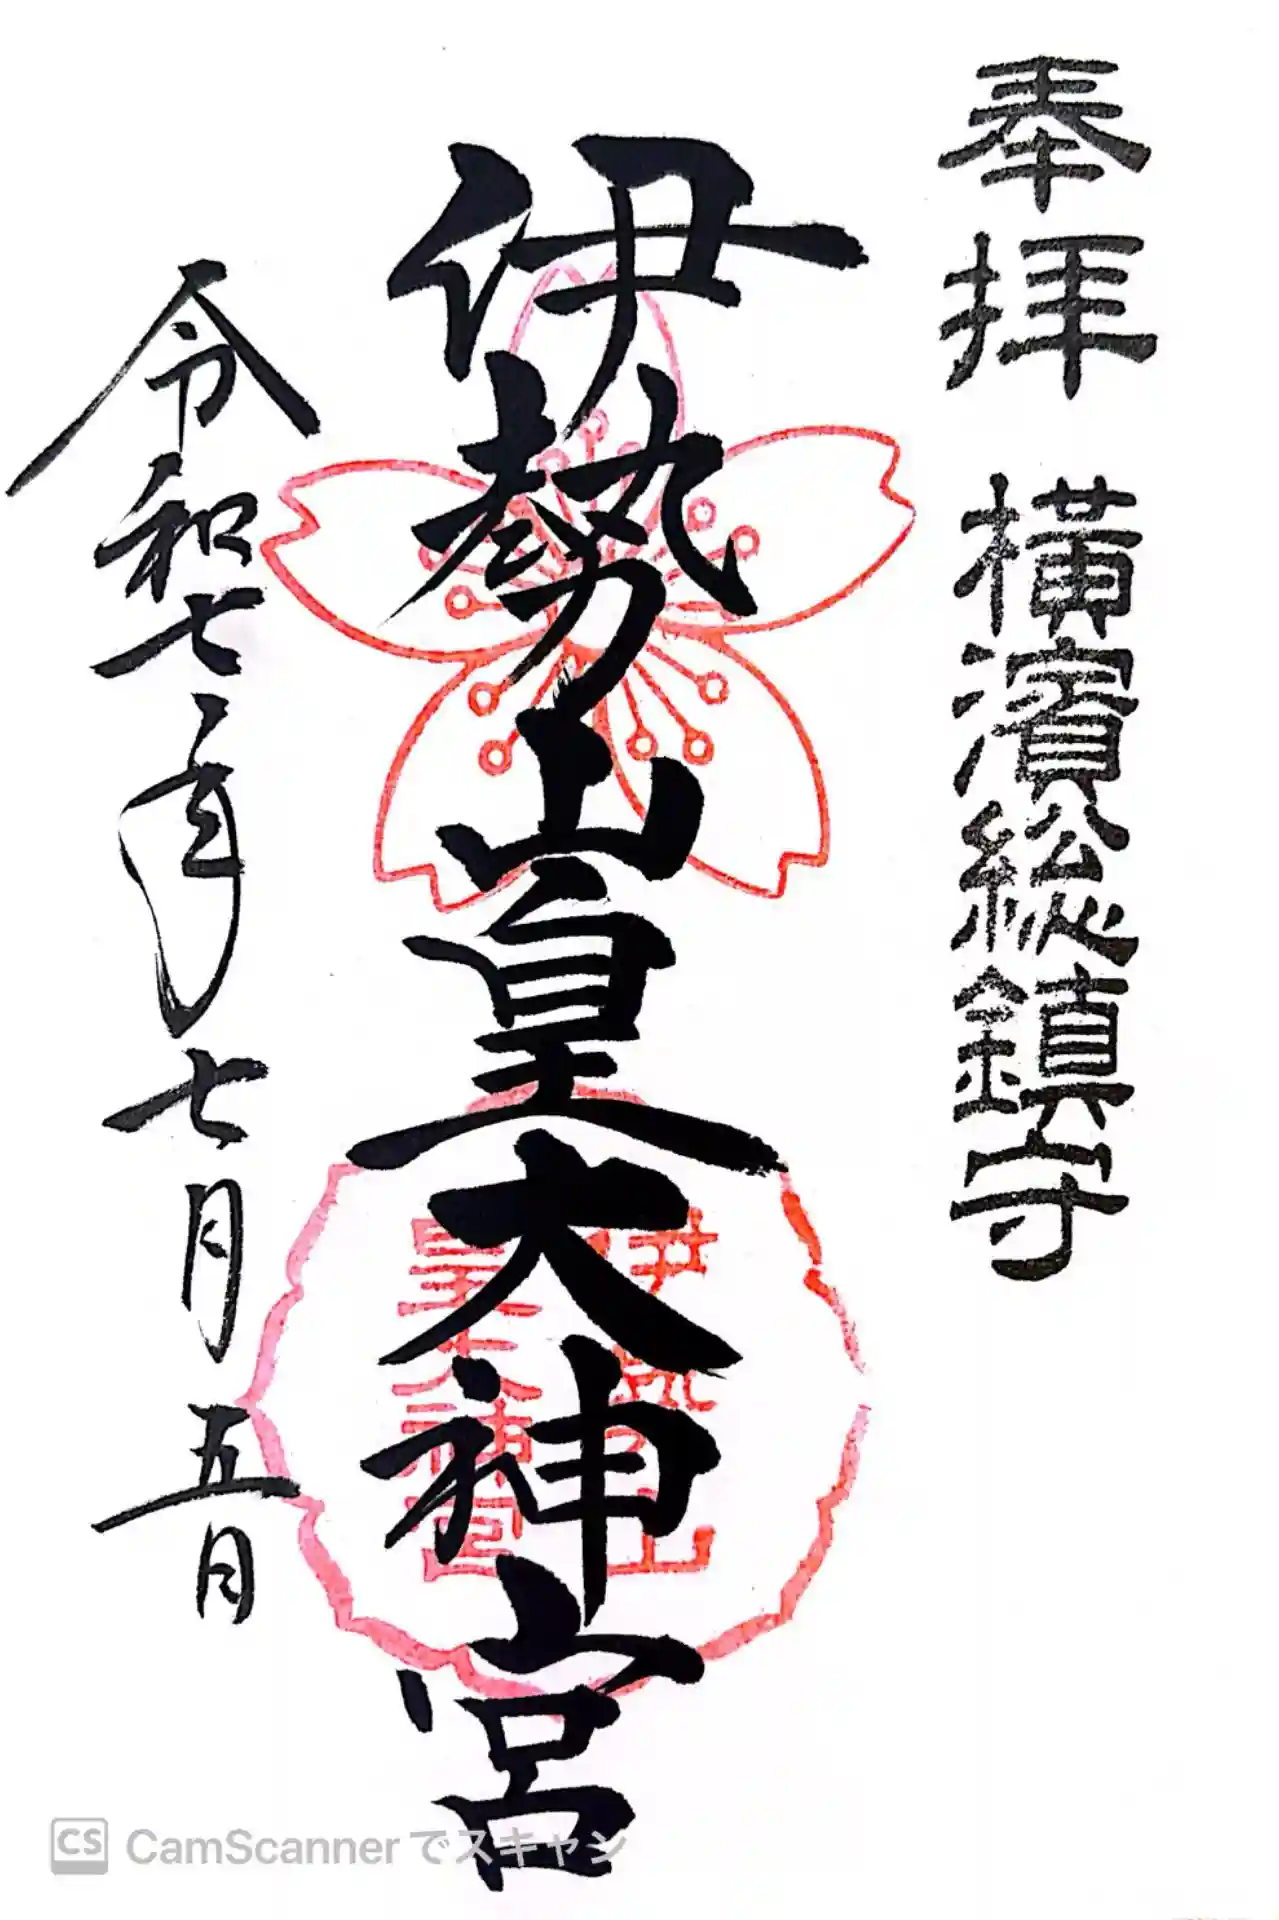 奉拝 横濱総鎮守
伊勢山皇大神宮
伊勢山
皇大神宮
令和七年七月五日
CS CamScannerでスキャン